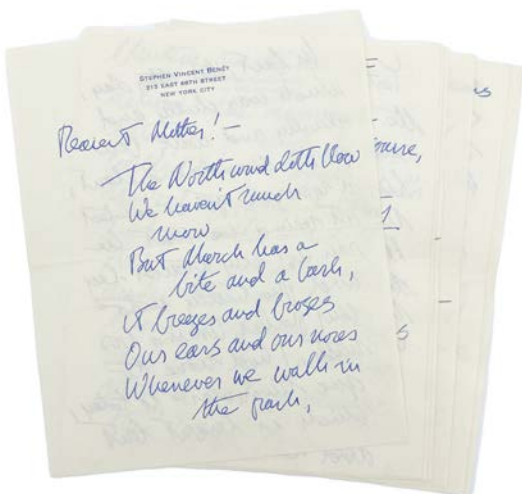 STEPHEN VINCENT BENÉT
215 EAST 69TH STREET
NEW YORK CITY
Dearest Mother! —
The North wind doth blow
We haven't much
snow
But March has a
bite and a bark,
It breezes and brozes
Our ears and our noses
Whenever we walk in
the park,